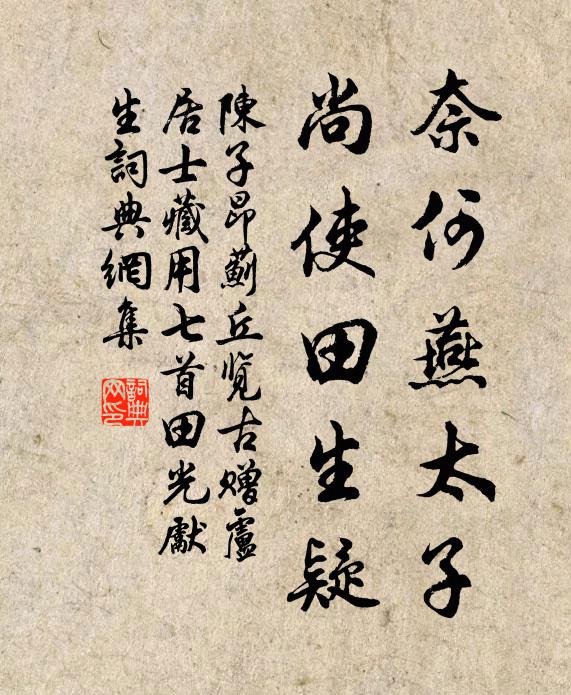 奈何燕太子
尚使田生疑
陳子昂薊丘覽古赠盧
居士藏用七首田光獻
生詞典網集
詞典
网印